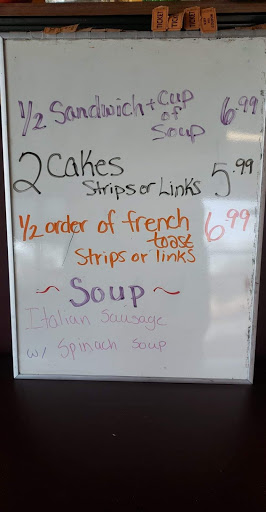 1/2 Sandwich + Cup
of
Soup 6.99
2 Cakes
Strips or Links 5.99
1/2 order of french
toast
Strips or links 6.99
~ Soup ~
Italian Sausage
w/ Spinach Soup